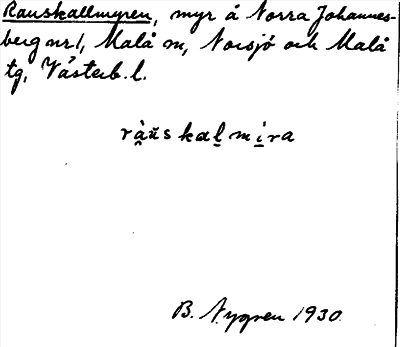 Rauskallmyren, myr å Norra Johannes-
berg nr 1, Malå sn, Norsjö och Malå
tg, Västerb. l.
ra̰ŭskal̲mi̲ra
B. Nygren 1930.